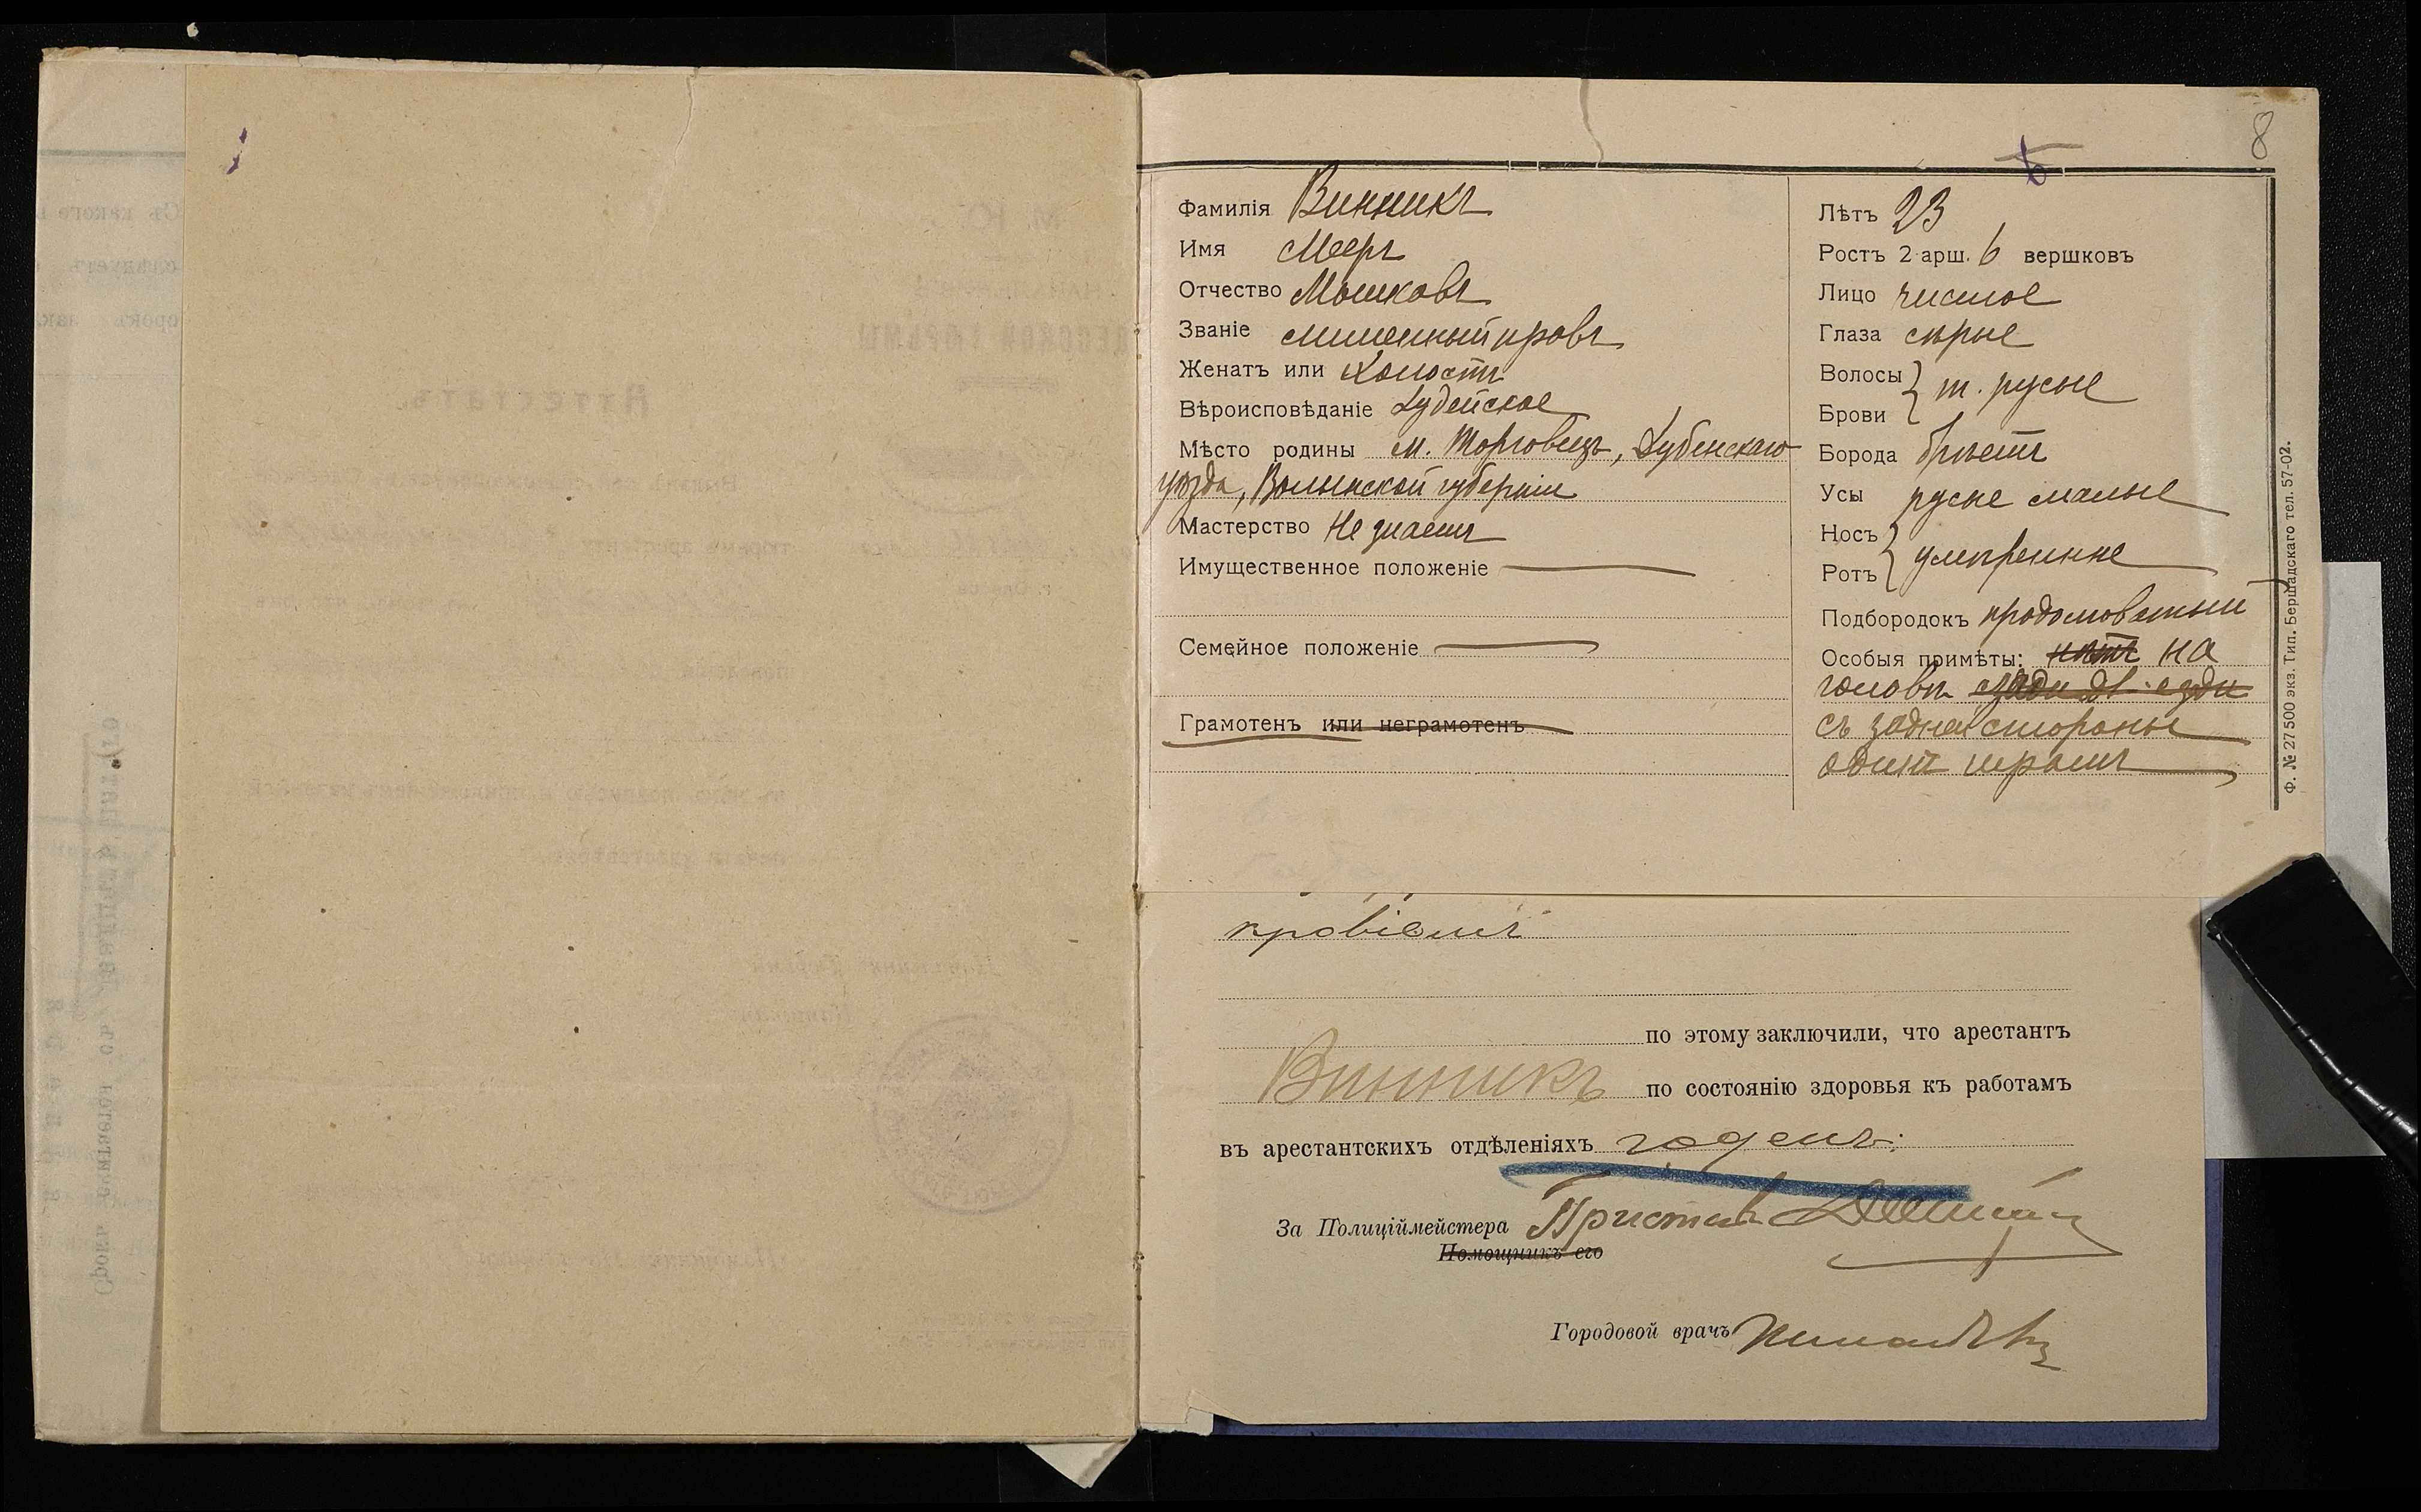 8
Фамилія Винникъ
Имя Мееръ
Отчество Мошковъ
Званіе лишенный правъ
Женатъ или Холостъ
Вѣроисповѣданіе Іудейское
Мѣсто родины м. Торговецъ, Дубенскаго
уѣзда, Волынской губерніи
Мастерство Не знаетъ
Имущественное положеніе
Семейное положеніе
Грамотенъ или неграмотенъ
Лѣтъ 23
Ростъ 2 арш. 6 вершковъ
Лицо чистое
Глаза сѣрые
Волосы
Брови
т. русые
Борода брѣетъ
Усы русые малые
Носъ
Ротъ
умѣренные
Подбородокъ продолговатый
Особыя примѣты: нѣтъ на
головѣ сзади
съ задней стороны
одинъ шрамъ
Ф. № 27 500 экз. Тип. Бершадскаго тел. 57-02.
кровіемъ
по этому заключили, что арестантъ
Винникъ по состоянію здоровья къ работамъ
въ арестантскихъ отдѣленіяхъ годенъ.
За Полиціймейстера Приставъ
Помощникъ его
Городовой врачъ